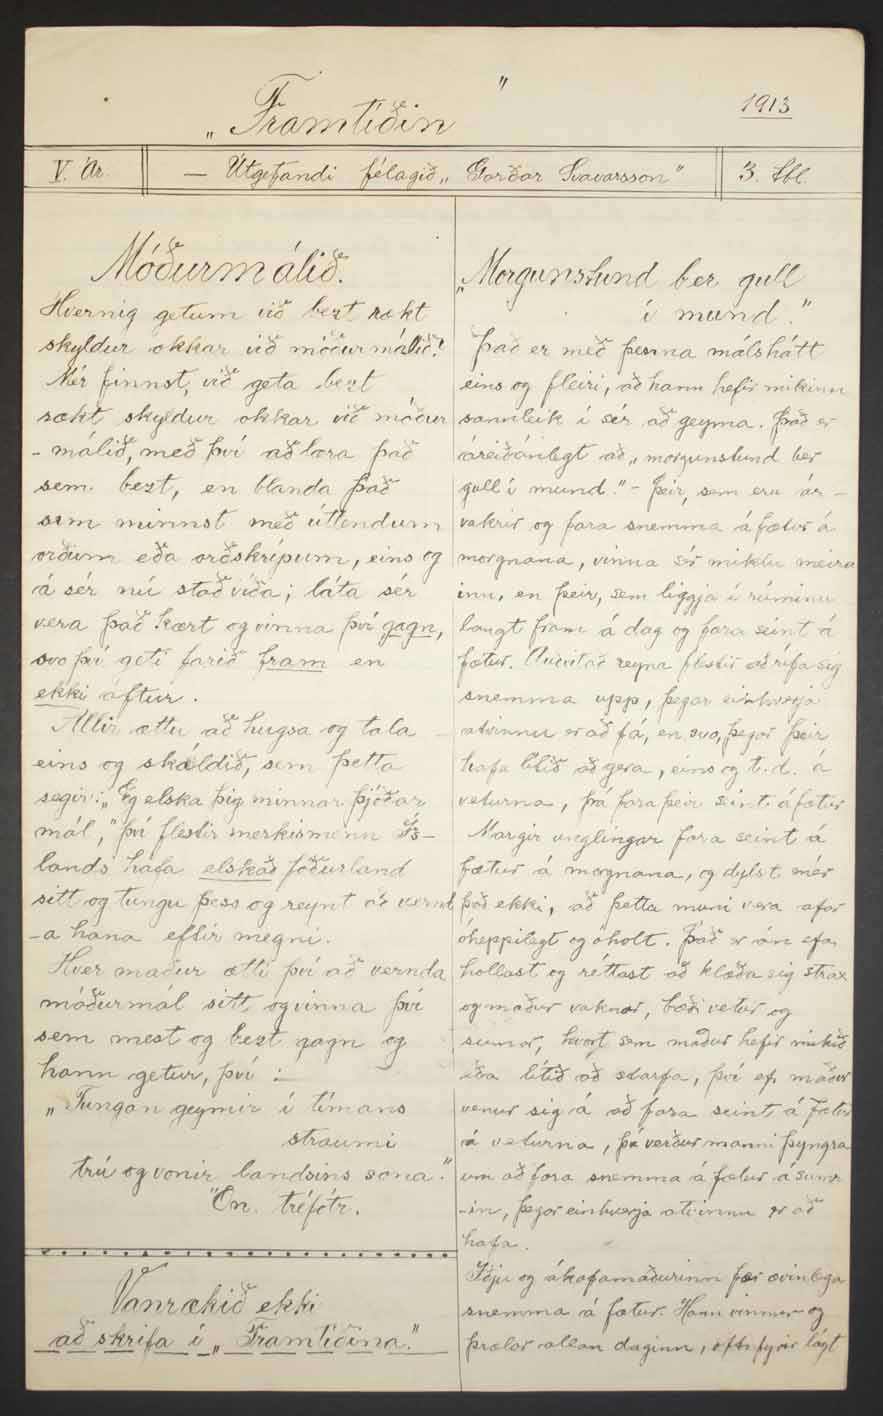 1913
„Framtíðin"
V. Ár. — Útgefandi félagið „Garðar Svavarsson" 3. tbl.
Móðurmálið.
Hvernig getum við bezt rækt
skyldur okkar við móðurmálið?
Mér finnst, við geta bezt
rækt skyldur okkar við móður
-málið, með því að læra það
sem bezt, en blanda það
sem minnst með útlendum
orðum eða orðskrípum, eins og
á sér nú stað víða; láta sér
vera það kært og vinna því gagn,
svo því geti farið fram en
ekki aftur.
Allir ættu að hugsa og tala
eins og skáldið, sem þetta
segir: „Eg elska þig minnar þjóðar
mál," því flestir merkismenn Ís-
lands hafa elskað föðurland
sitt og tungu þess og reynt að vernd
-a hana eftir megni.
Hver maður ætti því að vernda
móðurmál sitt og vinna því
sem mest og bezt gagn og
hann getur, því :
„Tungan geymir í tímans
straumi
trú og vonir landsins sona."
Ön. tréfótr.
Vanrækið ekki
að skrifa í „Framtíðina."
„Morgunstund ber gull
í mund."
Það er með þenna málshátt
eins og fleiri, að hann hefir mikinn
sannleik í sér að geyma. Það er
áreiðanlegt að „morgunstund ber
gull í mund." - Þeir, sem eru ár-
vakrir og fara snemma á fætur á
morgnana, vinna sér miklu meira
inn, en þeir, sem liggja í rúminu
langt fram á dag og fara seint á
fætur. Auðvitað reyna flestir að rífa sig
snemma upp, þegar einhverja
atvinnu er að fá, en svo, þegar þeir
hafa lítið að gera, eins og t.d. á
veturna, þá fara þeir seint á fætur
Margir unglingar fara seint á
fætur á morgnana, og dylst mér
það ekki, að þetta muni vera afar
óheppilegt og óholt. Það er án efa
hollast og réttast að klæða sig strax
og maður vaknar, bæði vetur og
sumar, hvort sem maður hefir mikið
eða lítið að starfa, því ef maður
venur sig á að fara seint á fætur
á veturna, þá verður manni þyngra
um að fara snemma á fætur á sumr
-in, þegar einhverja atvinnu er að
hafa.
Iðju og ákafamaðurinn fær ævinlega
snemma á fætur. Hann vinnur og
þrælar allan daginn, oft fyrir lágt